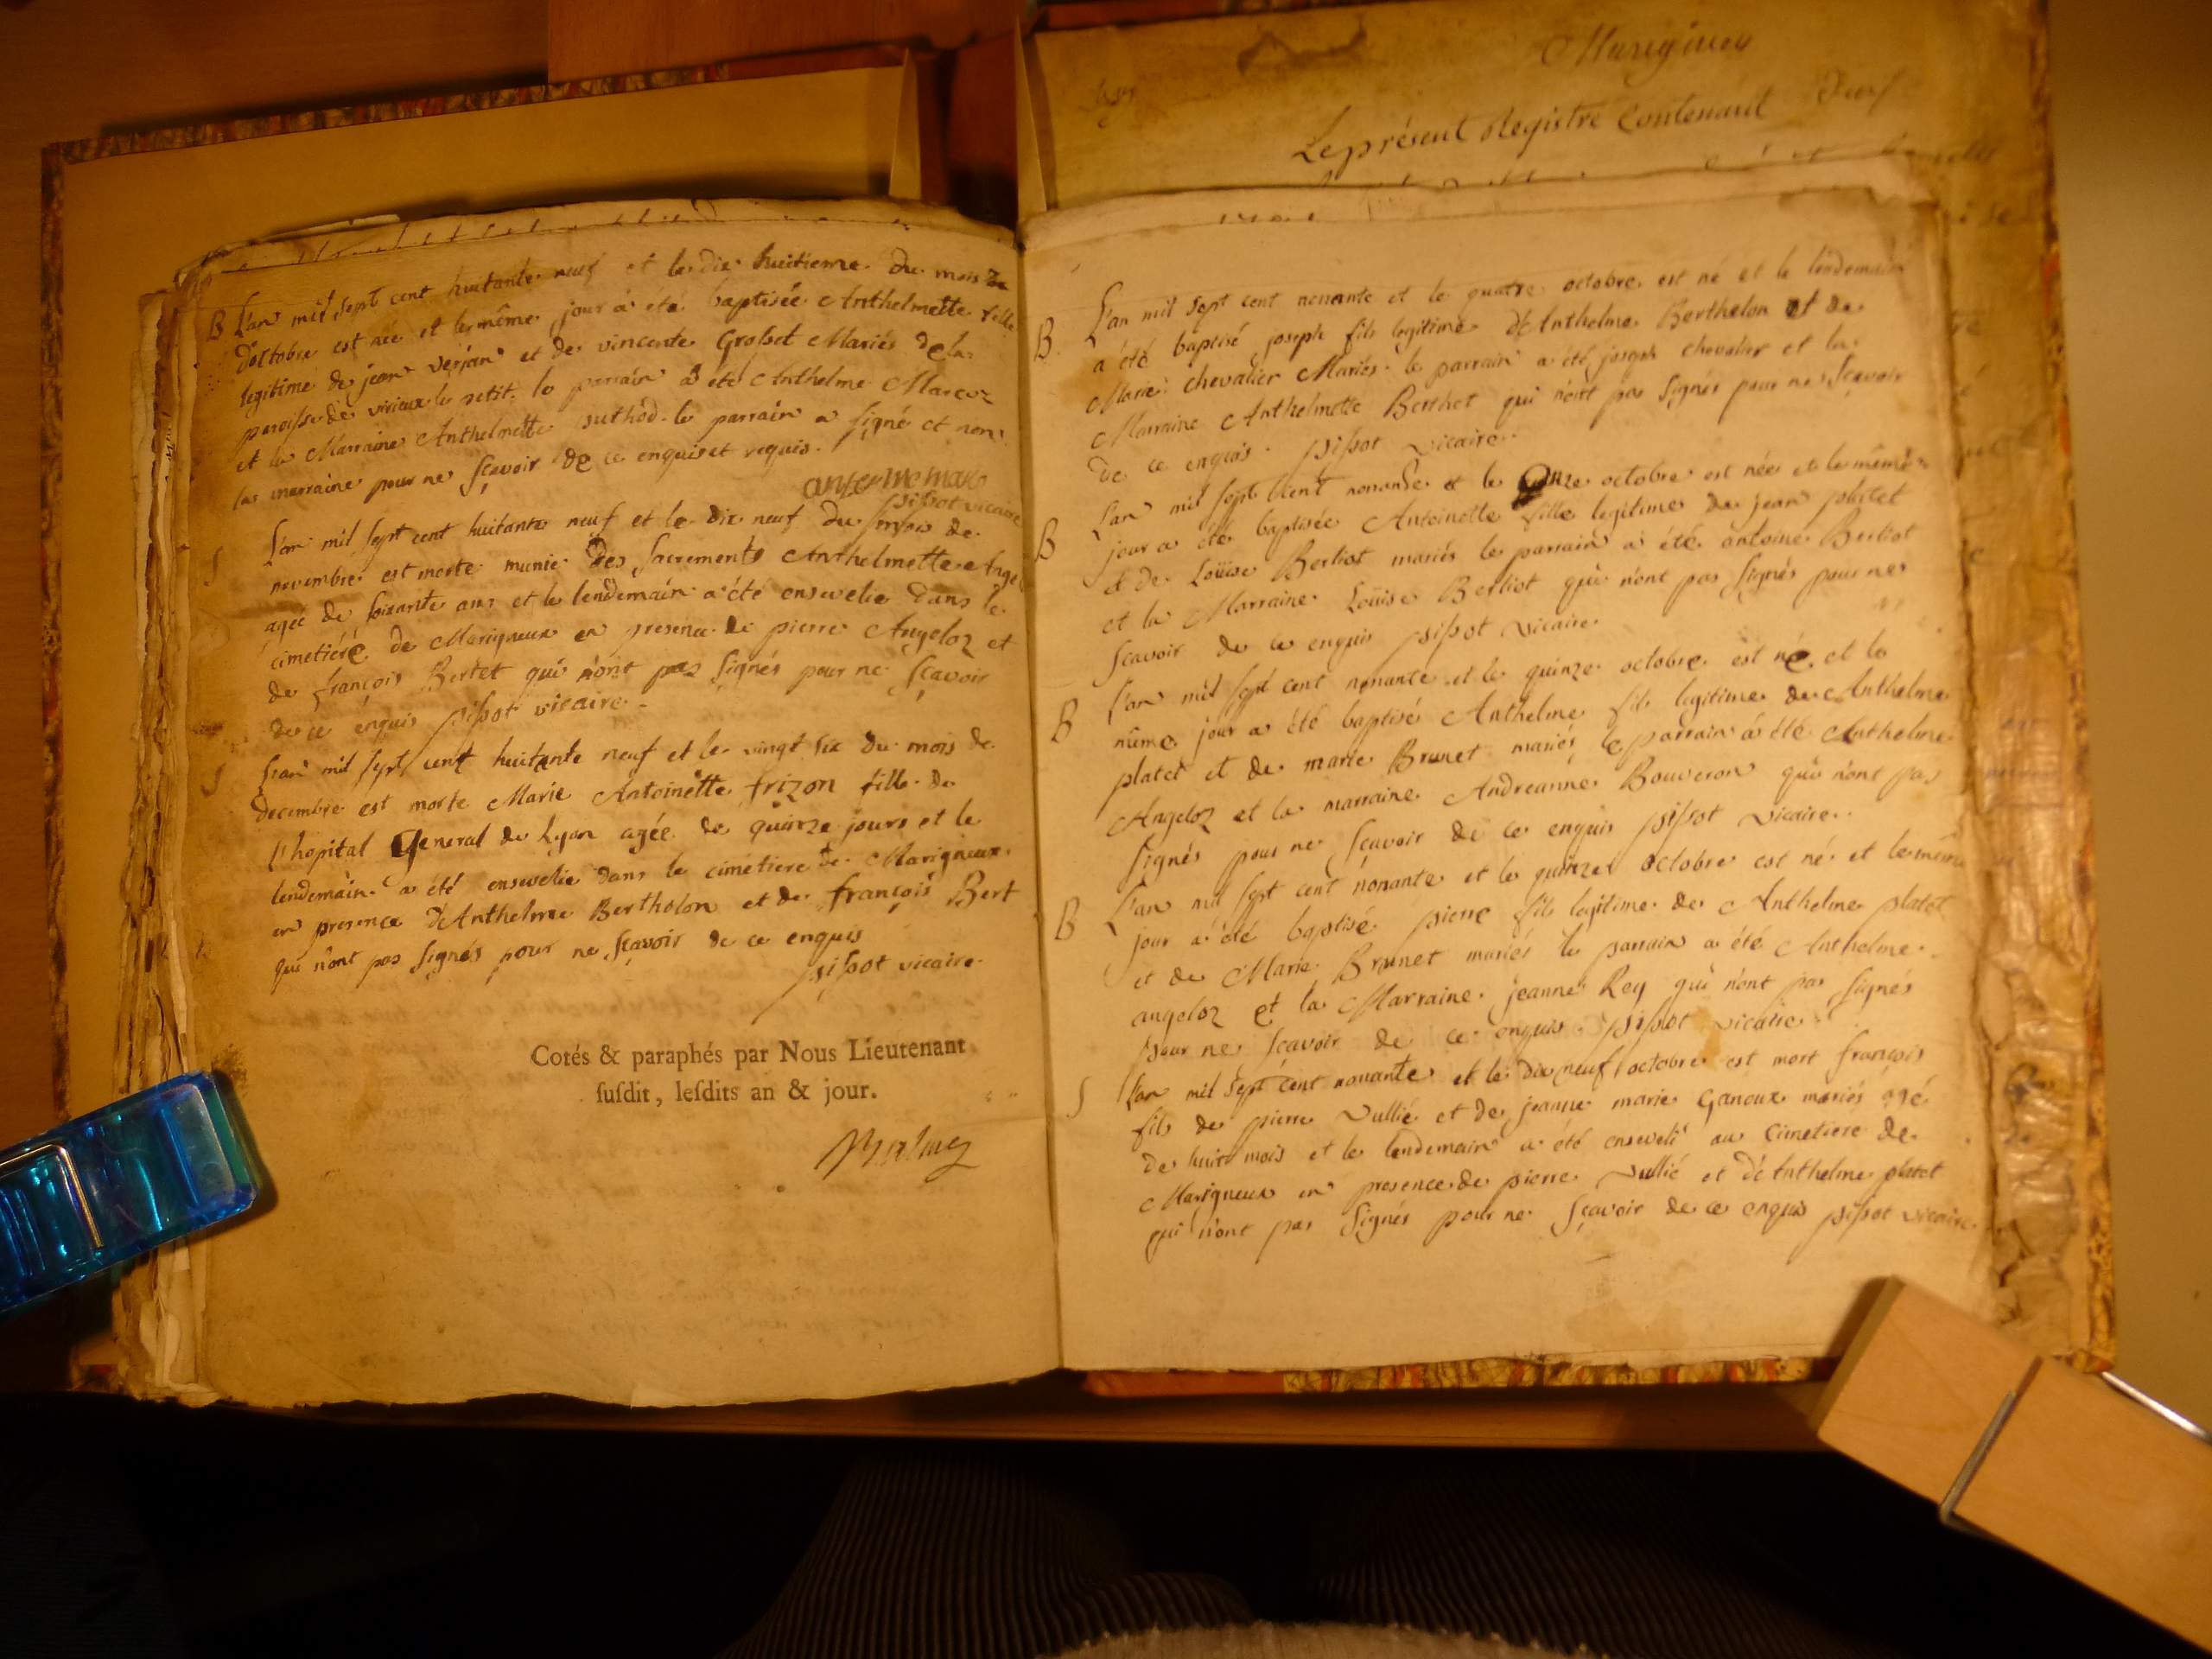 B L'an mil sept cent huitante neuf et le dix huitieme du mois de
d'octobre est née et le même jour a été baptisée Anthelmette fille
legitime de jean verjan et de vincente Grosset Mariés de la
paroisse de virieux le petit. le parrain a été Anthelme Marcoz
et la Marraine Anthelmette suthod. le parrain a signé et non
la marraine pour ne sçavoir de ce enquis et requis.
antermemar
pissot vicaire
S L'an mil sept cent huitante neuf et le dix neuf du mois de
novembre est morte munie des sacrements Anthelmette Ange
agée de soixante ans et le lendemain a été ensevelie dans le
cimetiére de Marigneux en presence de pierre Angeloz et
de françois Bertet qui n'ont pas signés pour ne sçavoir
de ce enquis pissot vicaire.
S L'an mil sept cent huitante neuf et le vingt six du mois de
decembre est morte Marie Antoinette frizon fille de
l'hopital General de Lyon agée de quinze jours et le
lendemain a été ensevelie dans le cimetiere de Marigneux
en presence d'Anthelme Bertholon et de françois Bert
qui n'ont pas signés pour ne sçavoir de ce enquis
pissot vicaire.
Cotés & paraphés par Nous Lieutenant
susdit, lesdits an & jour.
Marigneu
Le présent Registre Contenant
B L'an mil sept cent nonante et le quatre octobre est né et le lendemain
a été baptisé joseph fils legitime d'Anthelme Berthelon et de
Marie chevalier Mariés. le parrain a été joseph chevalier et la
Marraine Anthelmette Berthet qui n'ont pas signés pour ne sçavoir
de ce enquis. pissot vicaire.
B L'an mil sept cent nonante et le onze octobre est née et le même
jour a été baptisée Antoinette fille legitime de jean platet
et de Loüise Berliot mariés le parrain a été antoine Berliot
et la Marraine Loüise Berliot qui n'ont pas signés pour ne
scavoir de ce enquis pissot vicaire.
B L'an mil sept cent nonante et le quinze octobre est né et le
même jour a été baptisé Anthelme fils legitime de Anthelme
platet et de marie Brunet mariés le parrain a été Anthelme
Angeloz et la marraine Andreanne Bouveron qui n'ont pas
signés pour ne scavoir de ce enquis pissot vicaire.
B L'an mil sept cent nonante et le quinze octobre est né et le même
jour a été baptisé pierre fils legitime de Anthelme platet
et de Marie Brunet mariés le parrain a été Anthelme
angeloz et la Marraine jeanne Rey qui n'ont pas signés
pour ne scavoir de ce enquis. pissot vicaire.
S L'an mil sept cent nonante et le dix neuf octobre est mort françois
fils de pierre vullié et de jeanne marie Ganoux mariés agé
de huit mois et le lendemain a été enseveli au cimetiere de
Marigneux en presence de pierre vullié et d'Anthelme platet
qui n'ont pas signés pour ne sçavoir de ce enquis pissot vicaire